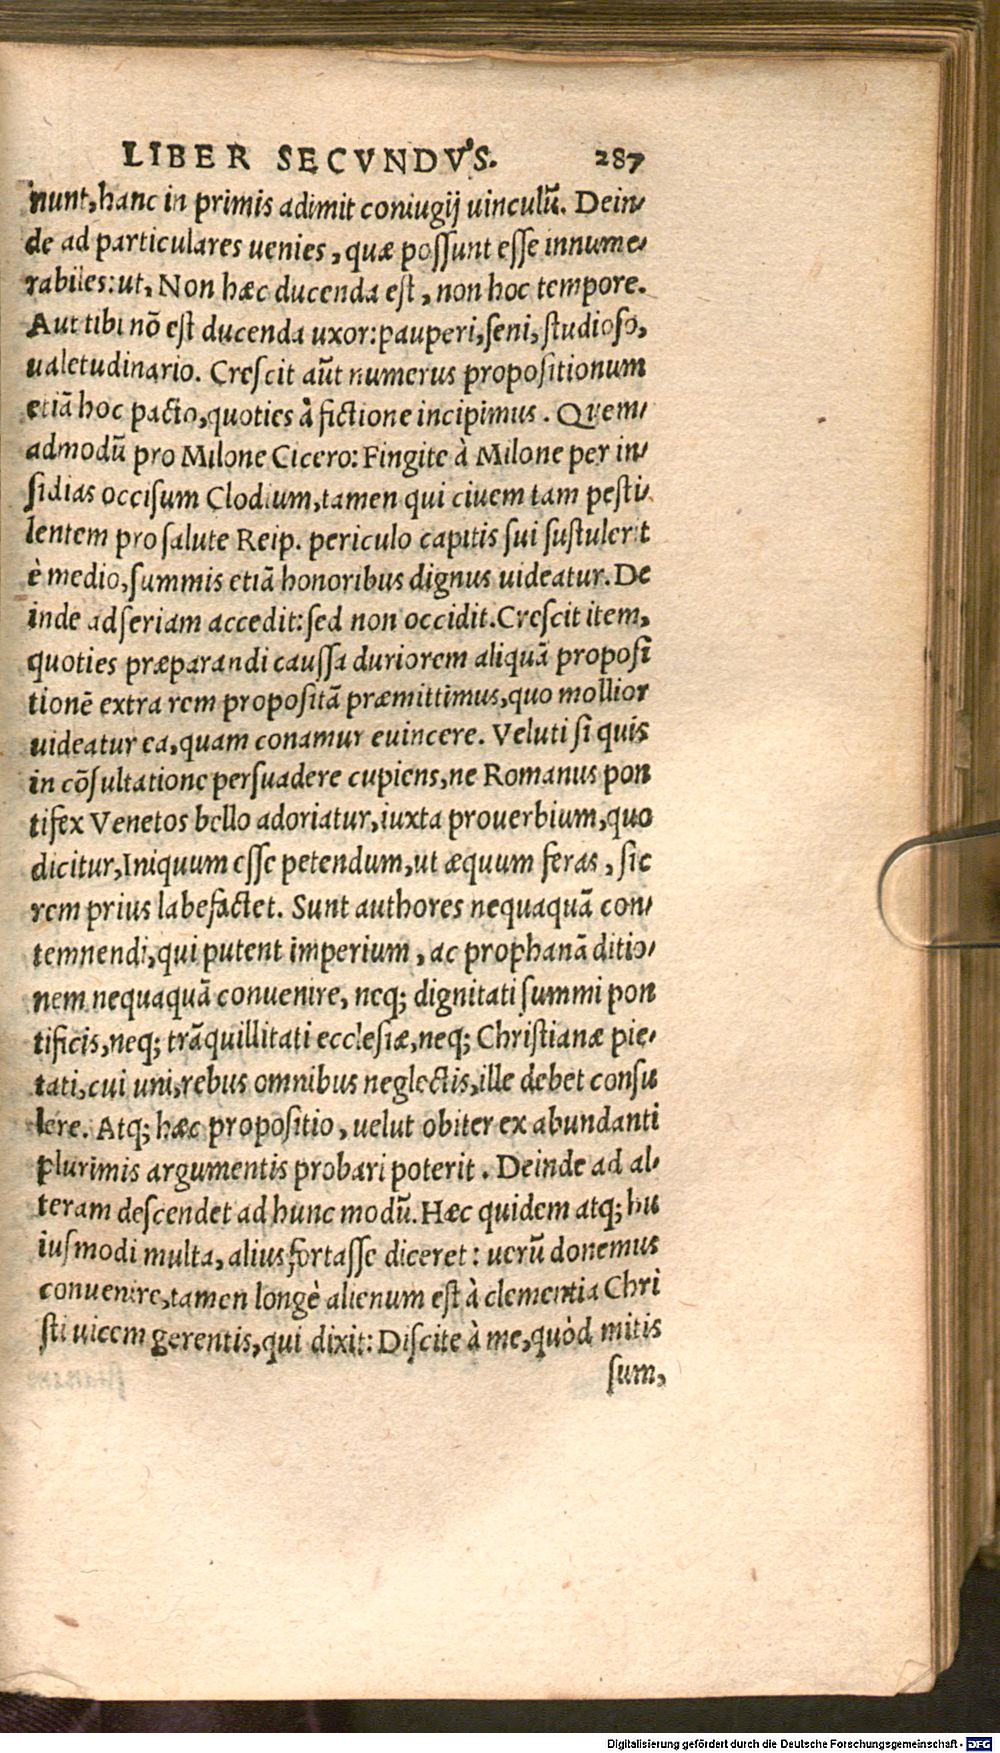 LIBER SECVNDVS. 287
nunt, hanc in primis adimit coniugij uinculũ. Dein-
de ad particulares uenies, quæ possunt esse innume-
rabiles: ut, Non hæc ducenda est, non hoc tempore.
Aut tibi nõ est ducenda uxor: pauperi, seni, studioso,
ualetudinario. Crescit aũt numerus propositionum
etiã hoc pacto, quoties à fictione incipimus. Quem-
admodũ pro Milone Cicero: Fingite à Milone per in-
sidias occisum Clodium, tamen qui ciuem tam pesti-
lentem pro salute Reip. periculo capitis sui sustulerit
è medio, summis etiã honoribus dignus uideatur. De
inde ad seriam accedit: sed non occidit. Crescit item,
quoties præparandi caussa duriorem aliquã proposi
tionẽ extra rem propositã præmittimus, quo mollior
uideatur ea, quam conamur euincere. Veluti si quis
in cõsultatione persuadere cupiens, ne Romanus pon
tifex Venetos bello adoriatur, iuxta prouerbium, quo
dicitur, Iniquum esse petendum, ut æquum feras, sic
rem prius labefactet. Sunt authores nequaquã con-
temnendi, qui putent imperium, ac prophanã ditio-
nem nequaquã conuenire, neq; dignitati summi pon
tificis, neq; trãquillitati ecclesiæ, neq; Christianæ pie-
tati, cui uni, rebus omnibus neglectis, ille debet consu
lere. Atq; hæc propositio, uelut obiter ex abundanti
plurimis argumentis probari poterit. Deinde ad al-
teram descendet ad hunc modũ. Hæc quidem atq; hu
iusmodi multa, alius fortasse diceret: uerũ donemus
conuenire, tamen longè alienum est à clementia Chri
sti uicem gerentis, qui dixit: Discite à me, quòd mitis
sum,
Digitalisierung gefördert durch die Deutsche Forschungsgemeinschaft - DFG